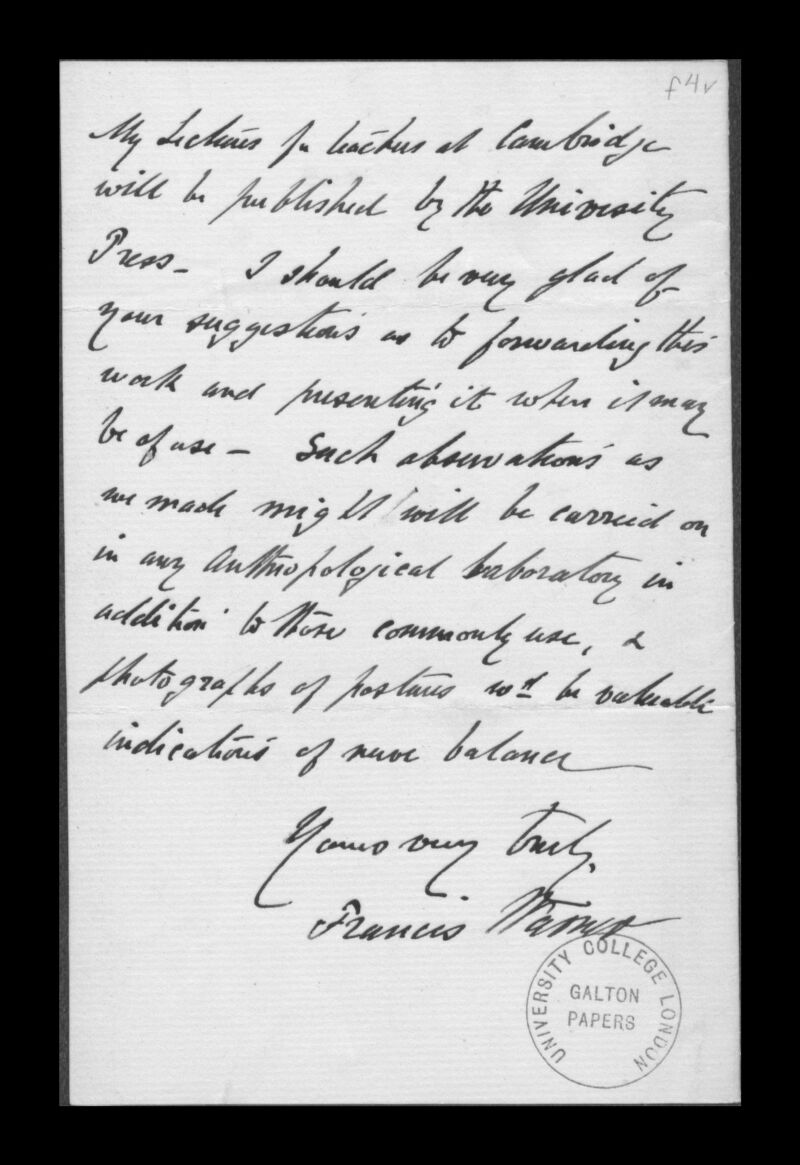 f4v
My Lectures for teachers at Cambridge
will be published by the University
Press - I should be very glad of
your suggestions as to forwarding this
work and presenting it when it may
be of use - Such observations as
we made might well be carried on
in any Anthropological laboratory in
addition to those commonly use, &
photographs of postures wd be valuable
indications of nerve balance
Yours very truly,
Francis Warner
UNIVERSITY COLLEGE LONDON
GALTON
PAPERS